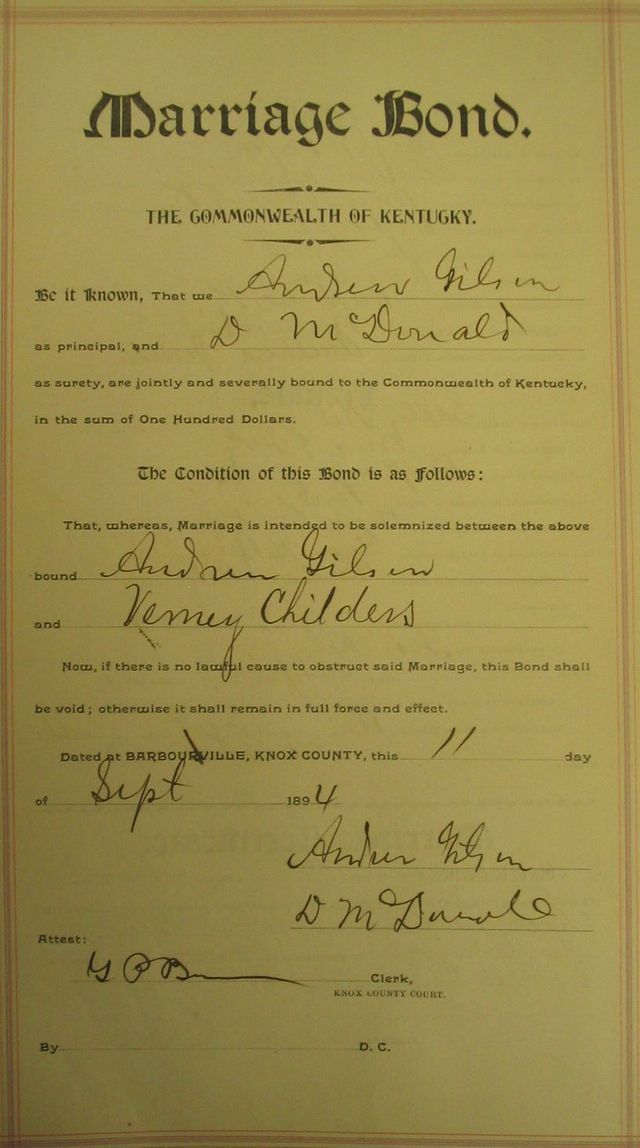 Marriage Bond.
THE COMMONWEALTH OF KENTUCKY.
Be it Known, That we Andrew Gilson
as principal, and D McDonald
as surety, are jointly and severally bound to the Commonwealth of Kentucky,
in the sum of One Hundred Dollars.
The Condition of this Bond is as Follows:
That, whereas, Marriage is intended to be solemnized between the above
bound Andrew Gilson
and Verney Childers
Now, if there is no lawful cause to obstruct said Marriage, this Bond shall
be void; otherwise it shall remain in full force and effect.
Dated at BARBOURVILLE, KNOX COUNTY, this 11 day
of Sept 1894
Andrew Gilson
D McDonald
Attest:
Clerk,
KNOX COUNTY COURT.
By D. C.